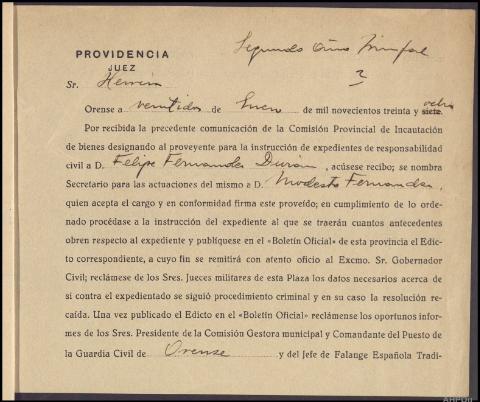 PROVIDENCIA
Segundo Año Triunfal
JUEZ
2
Sr. Herrein
Orense a veintidos de Enero de mil novecientos treinta y siete. ocho
Por recibida la precedente comunicación de la Comisión Provincial de Incautación
de bienes designando al proveyente para la instrucción de expedientes de responsabilidad
civil a D. Felipe Fernandez Durán, acúsese recibo; se nombra
Secretario para las actuaciones del mismo a D. Modesto Fernandez,
quien acepta el cargo y en conformidad firma este proveído; en cumplimiento de lo orde-
nado procédase a la instrucción del expediente al que se traerán cuantos antecedentes
obren respecto al expediente y publíquese en el «Boletín Oficial» de esta provincia el Edic-
to correspondiente, a cuyo fin se remitirá con atento oficio al Excmo. Sr. Gobernador
Civil; reclámese de los Sres. Jueces militares de esta Plaza los datos necesarios acerca de
si contra el expedientado se siguió procedimiento criminal y en su caso la resolución re-
caída. Una vez publicado el Edicto en el «Boletín Oficial» reclámense los oportunos infor-
mes de los Sres. Presidente de la Comisión Gestora municipal y Comandante del Puesto de
la Guardia Civil de Orense y del Jefe de Falange Española Tradi-